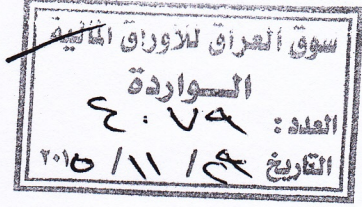 سوق العراق للاوراق المالية
الواردة
العدد: ٤٠٧٩
التاريخ ٢٩ / ١١ / ٢٠١٥